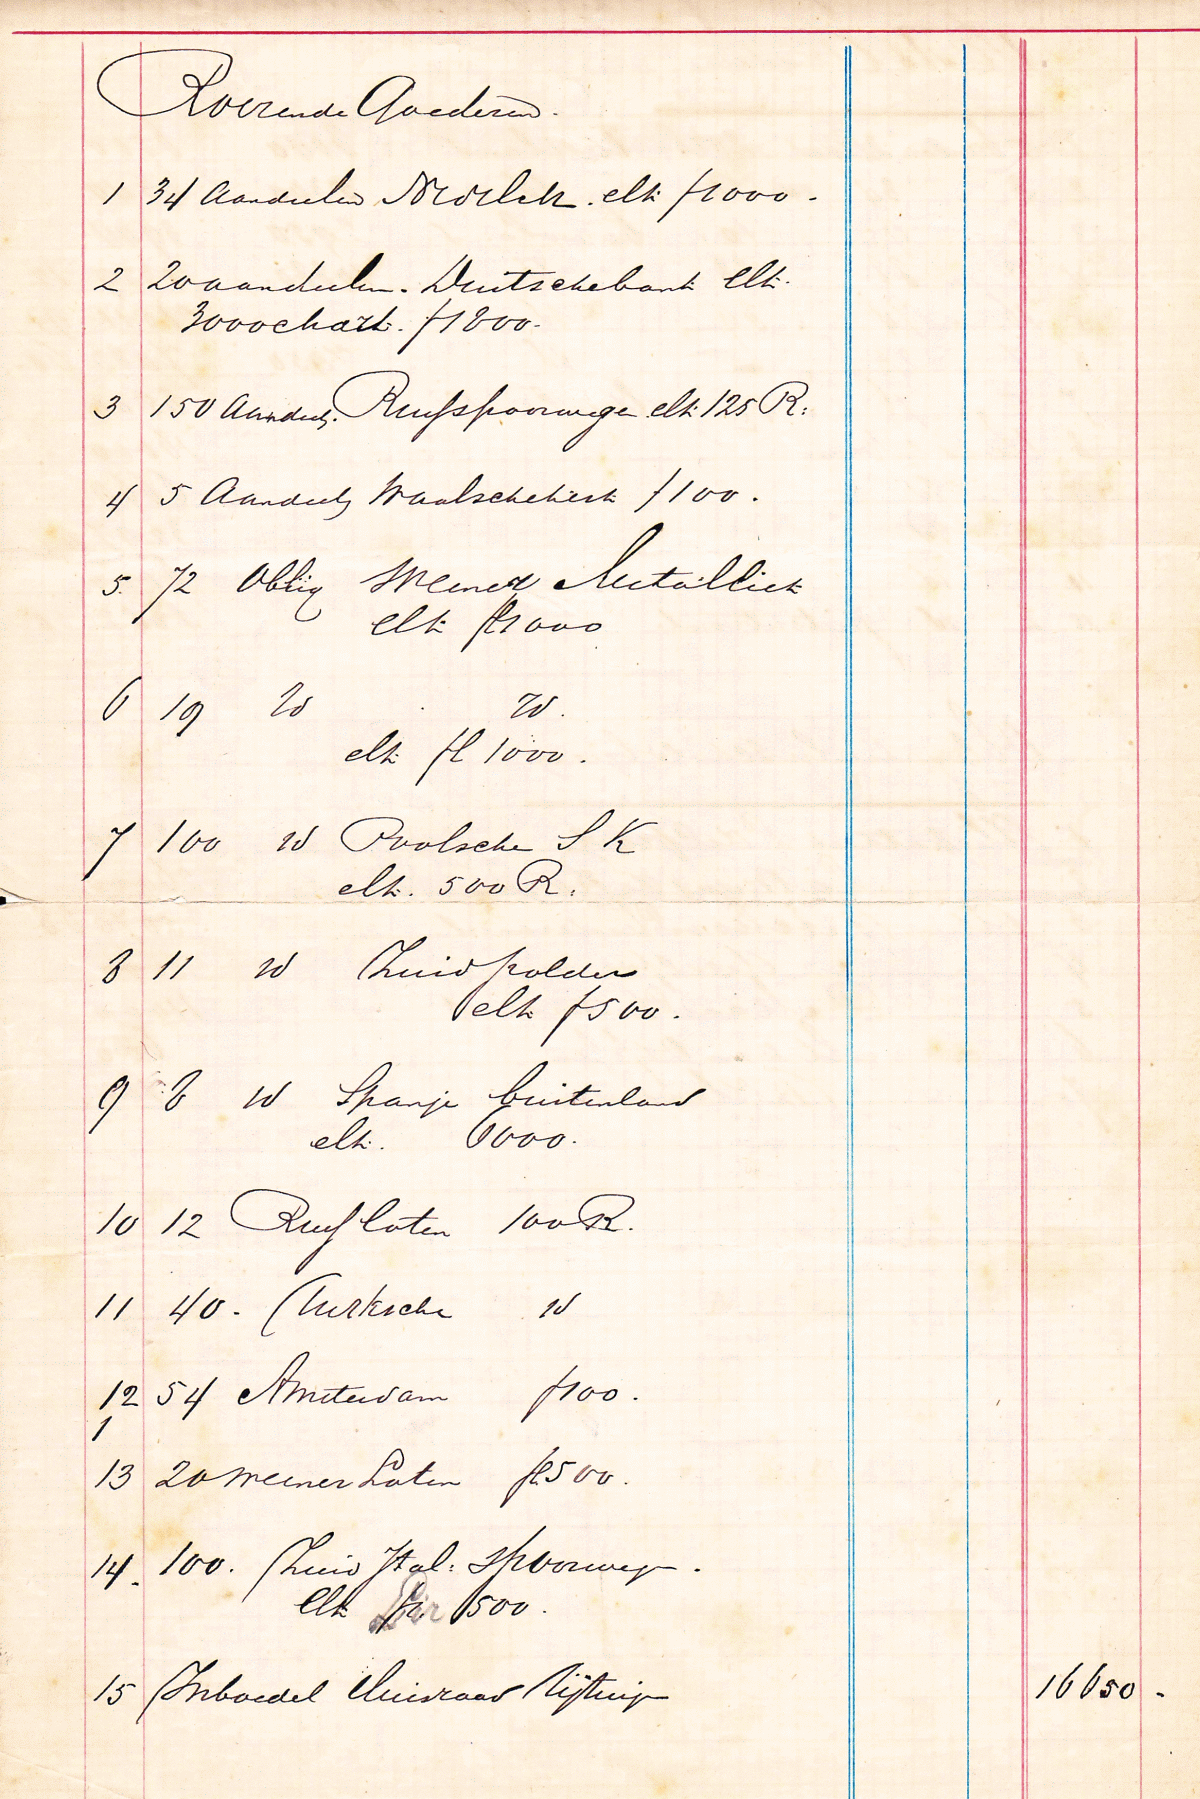 Roerende Goederen.
1 34 Aandeelen elk f1000.
2 20 aandeelen. Duitschebank elk.
3000 chart. f1800.
3 150 Aandeel. Russspoorwege elk 125 R.
4 5 Aandeel Waalschekerk f100.
5. 72 Oblig Weener Metalliek
elk fl1000
6 19 id id.
elk fl 1000.
7 100 id Poolsche S K
elk. 500 R.
8 11 id Zuidpolder
elk f500.
9 8 id Spanje buitenland
elk. 6000.
10 12 Russ loten 100 R.
11 40. Turksche id
12 54 Amsterdam f100.
1
13 20 Weener Loten fl500.
14. 100. Zuid Ital: Spoorweg.
elk Lir 500.
15 Inboedel Huisraad Rijtuig 16650.